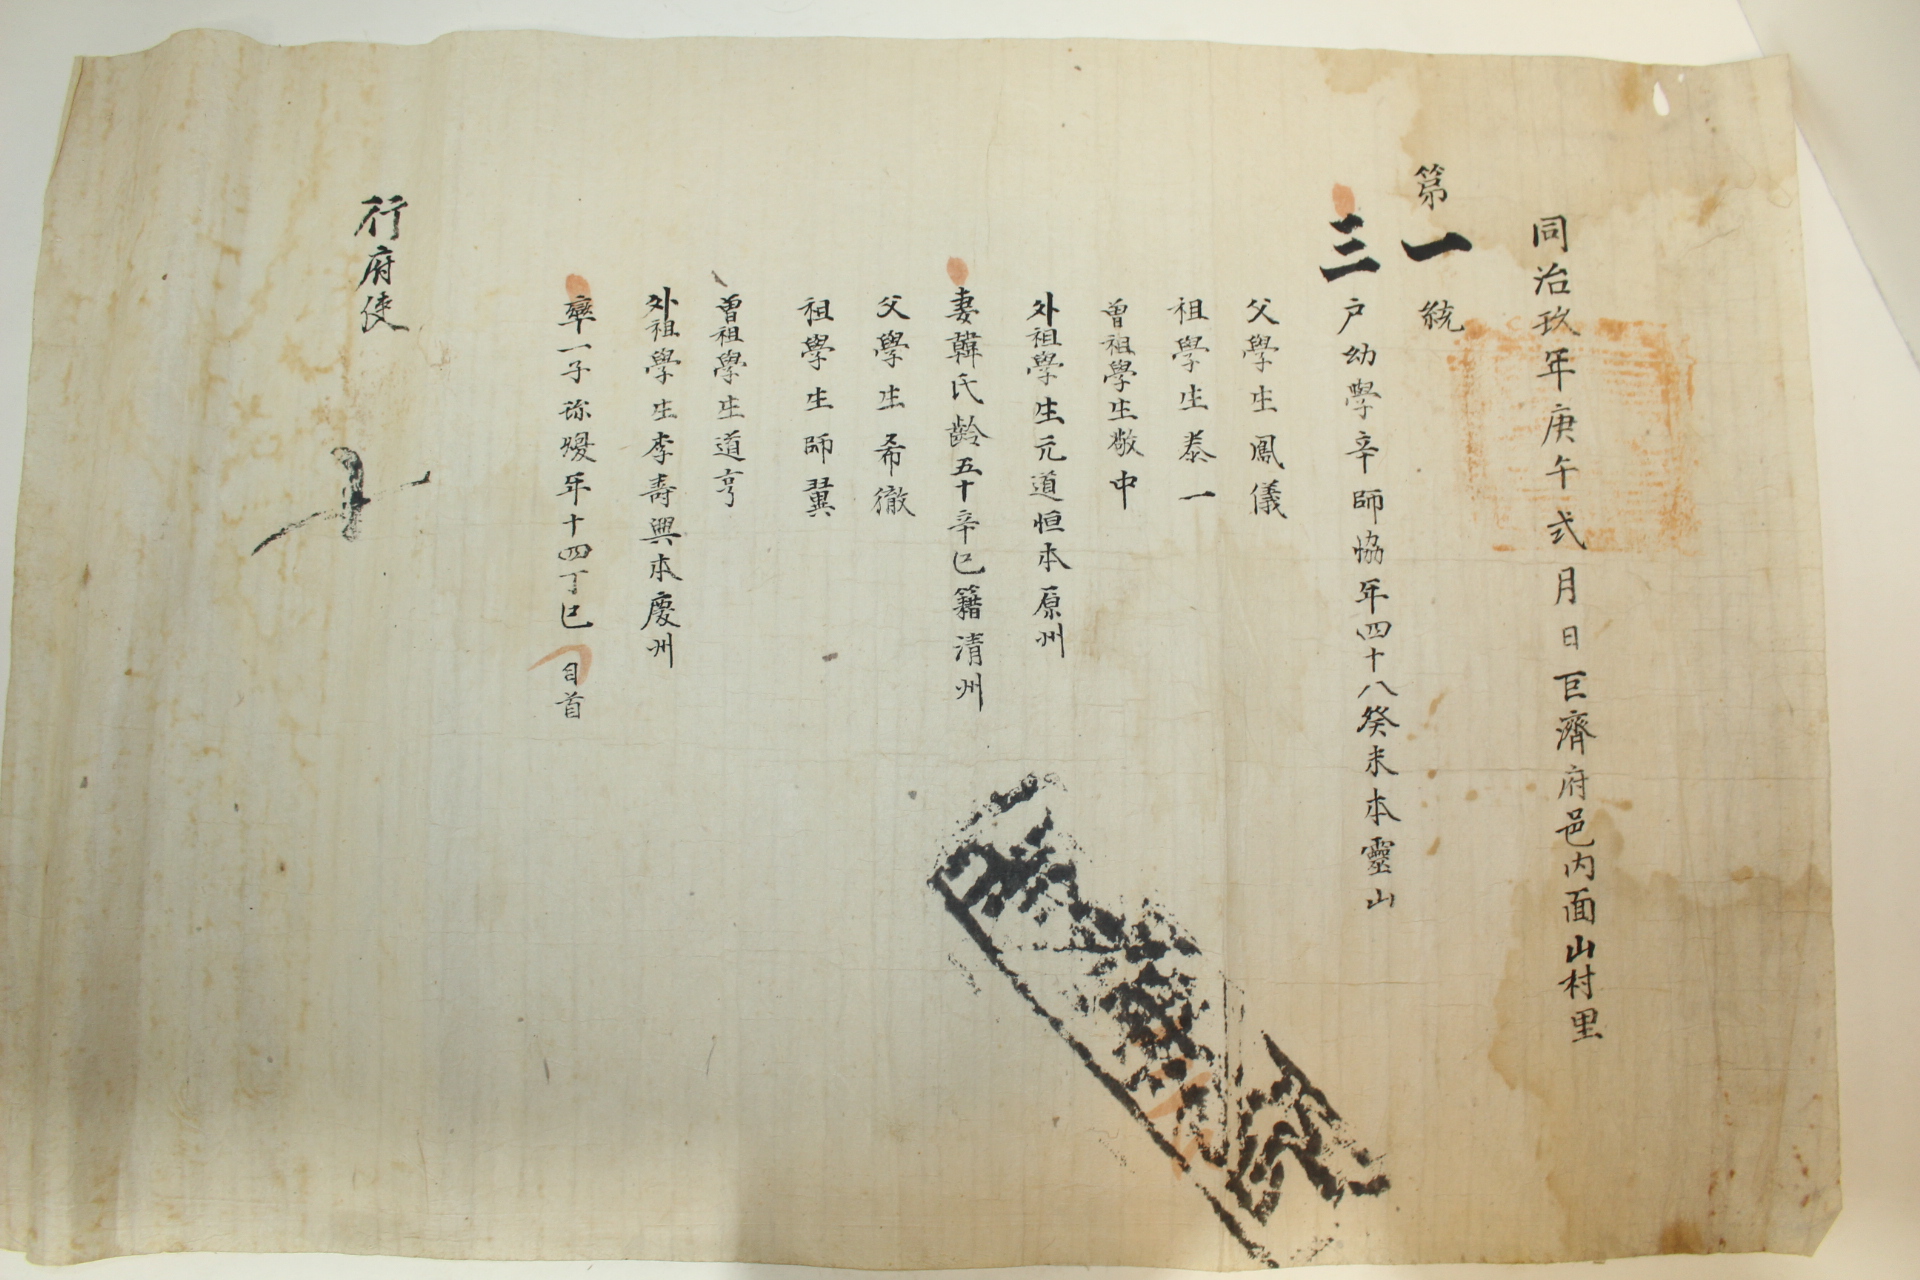 同治玖年庚午弍月日巨濟府邑内面山村里
第一統
三戶幼學辛師協年四十八癸未本靈山
父學生鳳儀
祖學生泰一
曾祖學生敬中
外祖學生元道恒本原州
妻韓氏齡五十辛巳籍清州
父學生希徹
祖學生師翼
曾祖學生道亨
外祖學生李壽興本慶州
率一子年十四丁巳
行府使